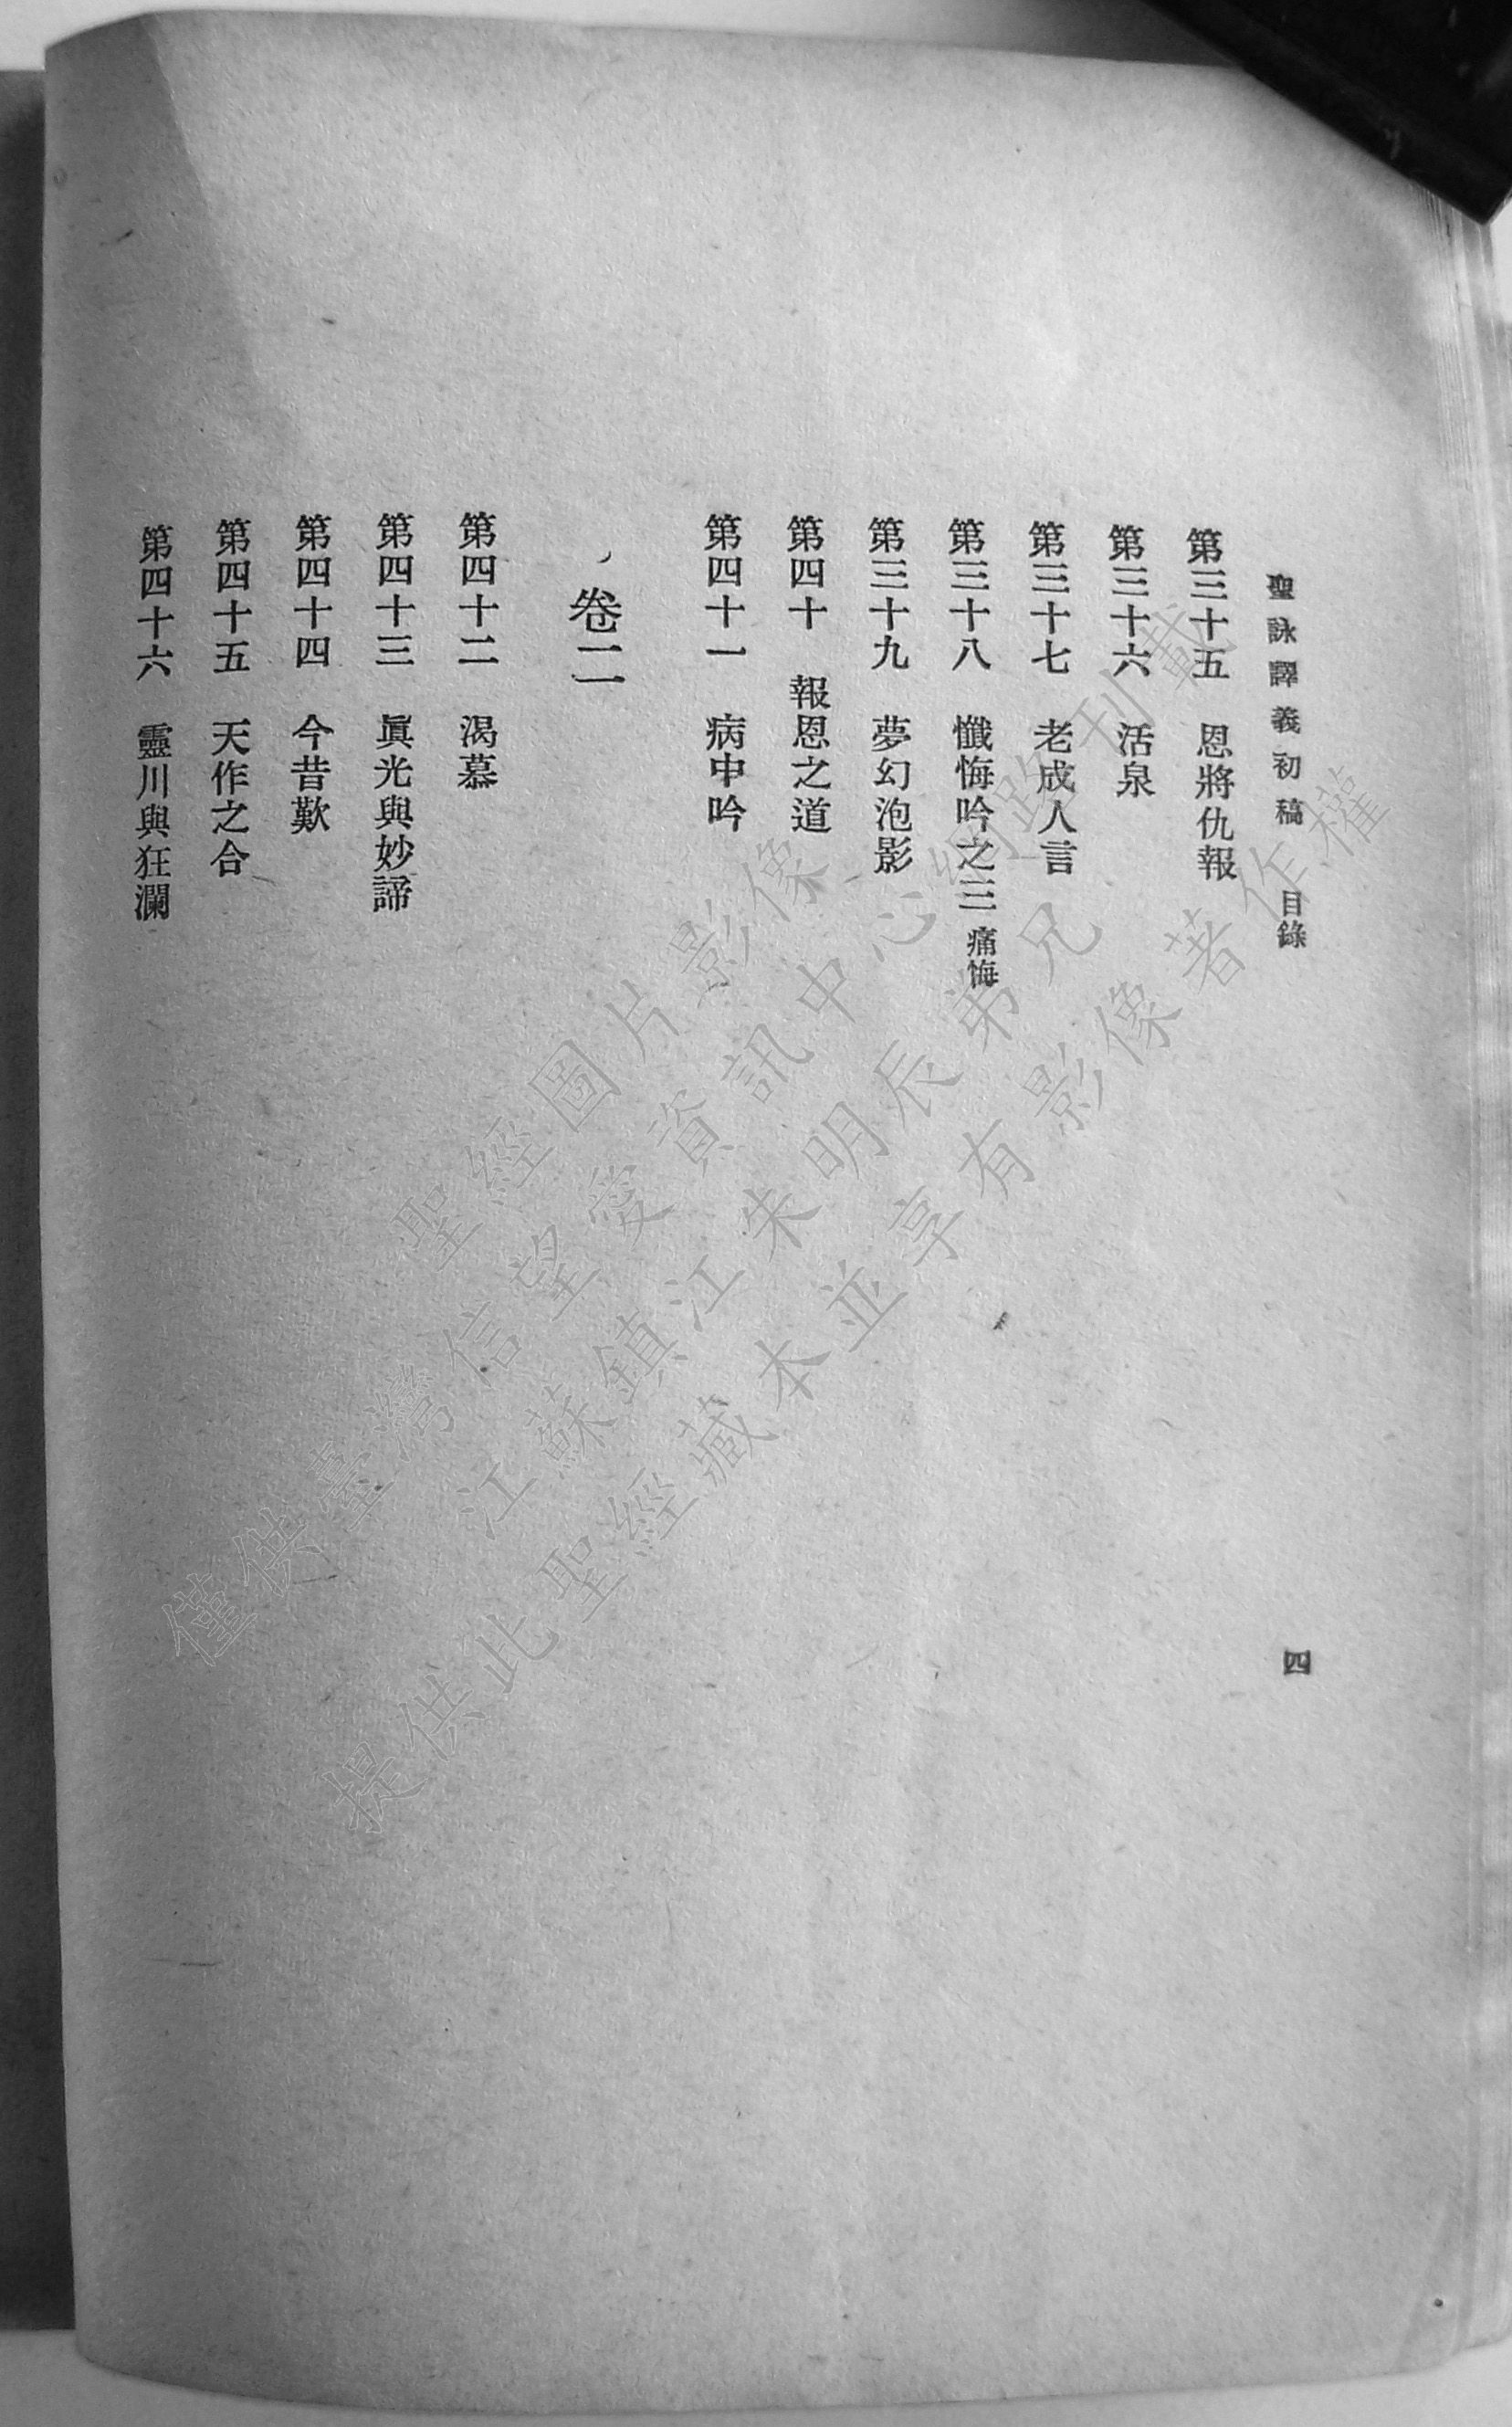 聖詠譯義初稿 目錄 四
第三十五 恩將仇報
第三十六 活泉
第三十七 老成人言
第三十八 懺悔吟之三 痛悔
第三十九 夢幻泡影
第四十 報恩之道
第四十一 病中吟
卷二
第四十二 渴慕
第四十三 眞光與妙諦
第四十四 今昔歎
第四十五 天作之合
第四十六 靈川與狂瀾
聖經圖片影像
僅供臺灣信望愛資訊中心網路刊載
江蘇鎮江朱明辰弟兄
提供此聖經藏本並享有影像著作權